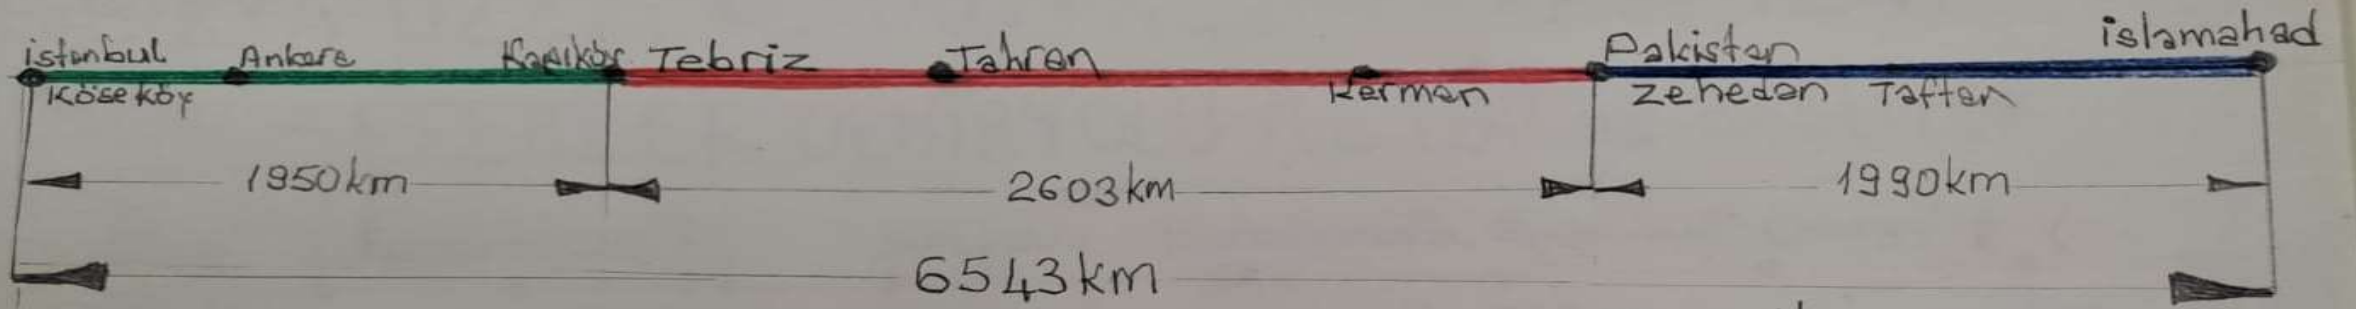 istanbul Ankara Kapıköy Tebriz Tahran Pakistan islamabad
Köseköy Kerman Zehedan Taftan
1950km 2603km 1990km
6543km